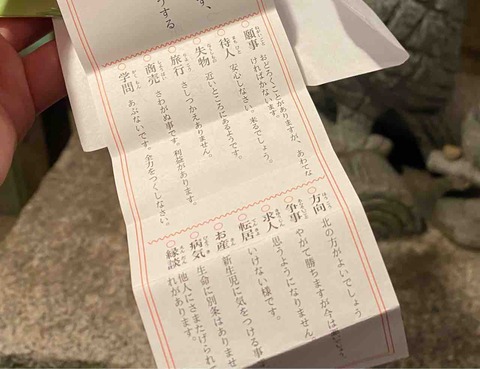 ず、
りする
願事 おどろくことがありますが、あわてな
ければかないます。
待人 安心しなさい。来るでしょう。
失物 近いところにあるようです。
旅行 さしつかえありません。
商売 さわがぬ事です。利益があります。
学問 あぶないです。全力をつくしなさい。
方向 北の方がよいでしょう
争事 やがて勝ちますが今は
求人 思うようになりません
転居 いけない様です。
お産 新生児に気をつける事
病気 生命に別条はありませ
縁談 他人にさまたげられて
れがあります。